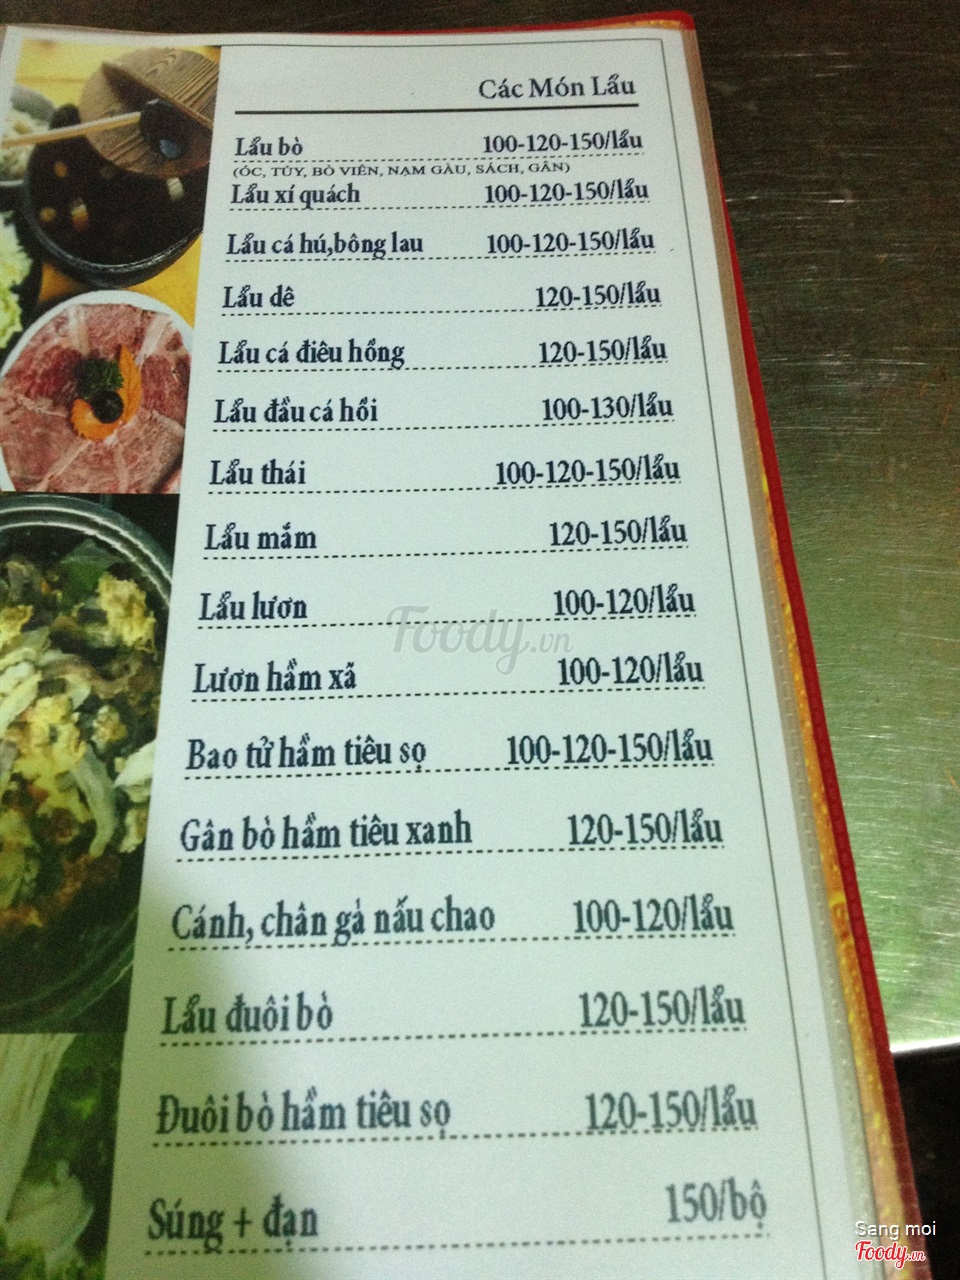 Các Món Lẩu
Lẩu bò 100-120-150/lẩu
(ÓC, TỦY, BÒ VIÊN, NẠM GÀU, SÁCH, GÂN)
Lẩu xí quách 100-120-150/lẩu
Lẩu cá hú,bông lau 100-120-150/lẩu
Lẩu dê 120-150/lẩu
Lẩu cá điêu hồng 120-150/lẩu
Lẩu đầu cá hồi 100-130/lẩu
Lẩu thái 100-120-150/lẩu
Lẩu mắm 120-150/lẩu
Lẩu lươn 100-120/lẩu
Lươn hầm xả 100-120/lẩu
Bao tử hầm tiêu sọ 100-120-150/lẩu
Gân bò hầm tiêu xanh 120-150/lẩu
Cánh, chân gà nấu chao 100-120/lẩu
Lẩu đuôi bò 120-150/lẩu
Đuôi bò hầm tiêu sọ 120-150/lẩu
Súng + đạn 150/bộ
Foody.vn
Sang moi
Foody.vn